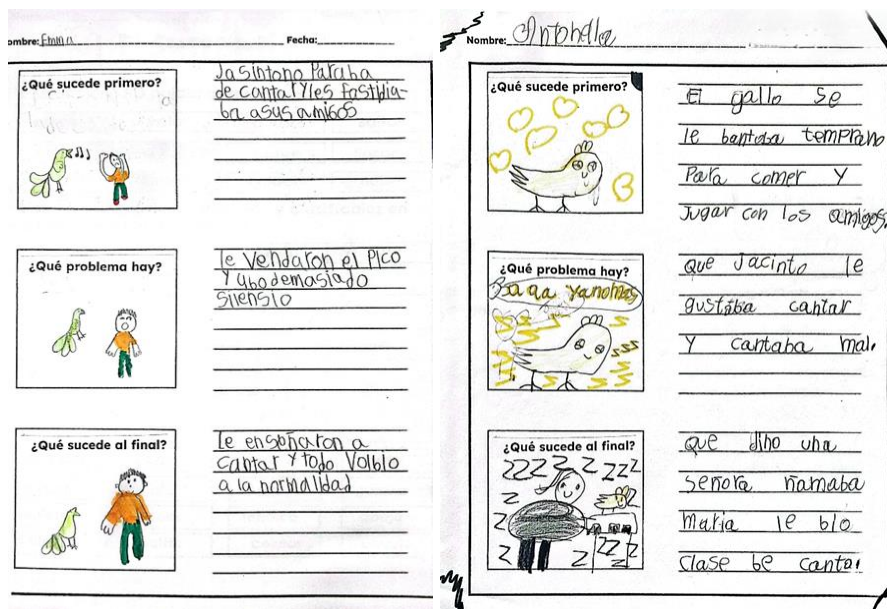 ombre: Emma Fecha:
¿Qué sucede primero?
Jasintono Paraba
de cantar Yles fastidia-
ba asus amigos
¿Qué problema hay?
le Vendaron el Pico
Y ubo demasiado
Silensio
¿Qué sucede al final?
le enseñaron a
cantar Y todo Volbio
a la normalidad
Nombre: Antonella
¿Qué sucede primero?
El gallo se
le bantaba temprano
Para comer Y
Jugar con los amigos.
¿Qué problema hay?
Baaa yanomas
que Jacinto le
gustaba cantar
Y cantaba mal.
¿Qué sucede al final?
ZZZZ Z ZZZ
que bino una
señora ñamaba
maria le bio
clase be canta.